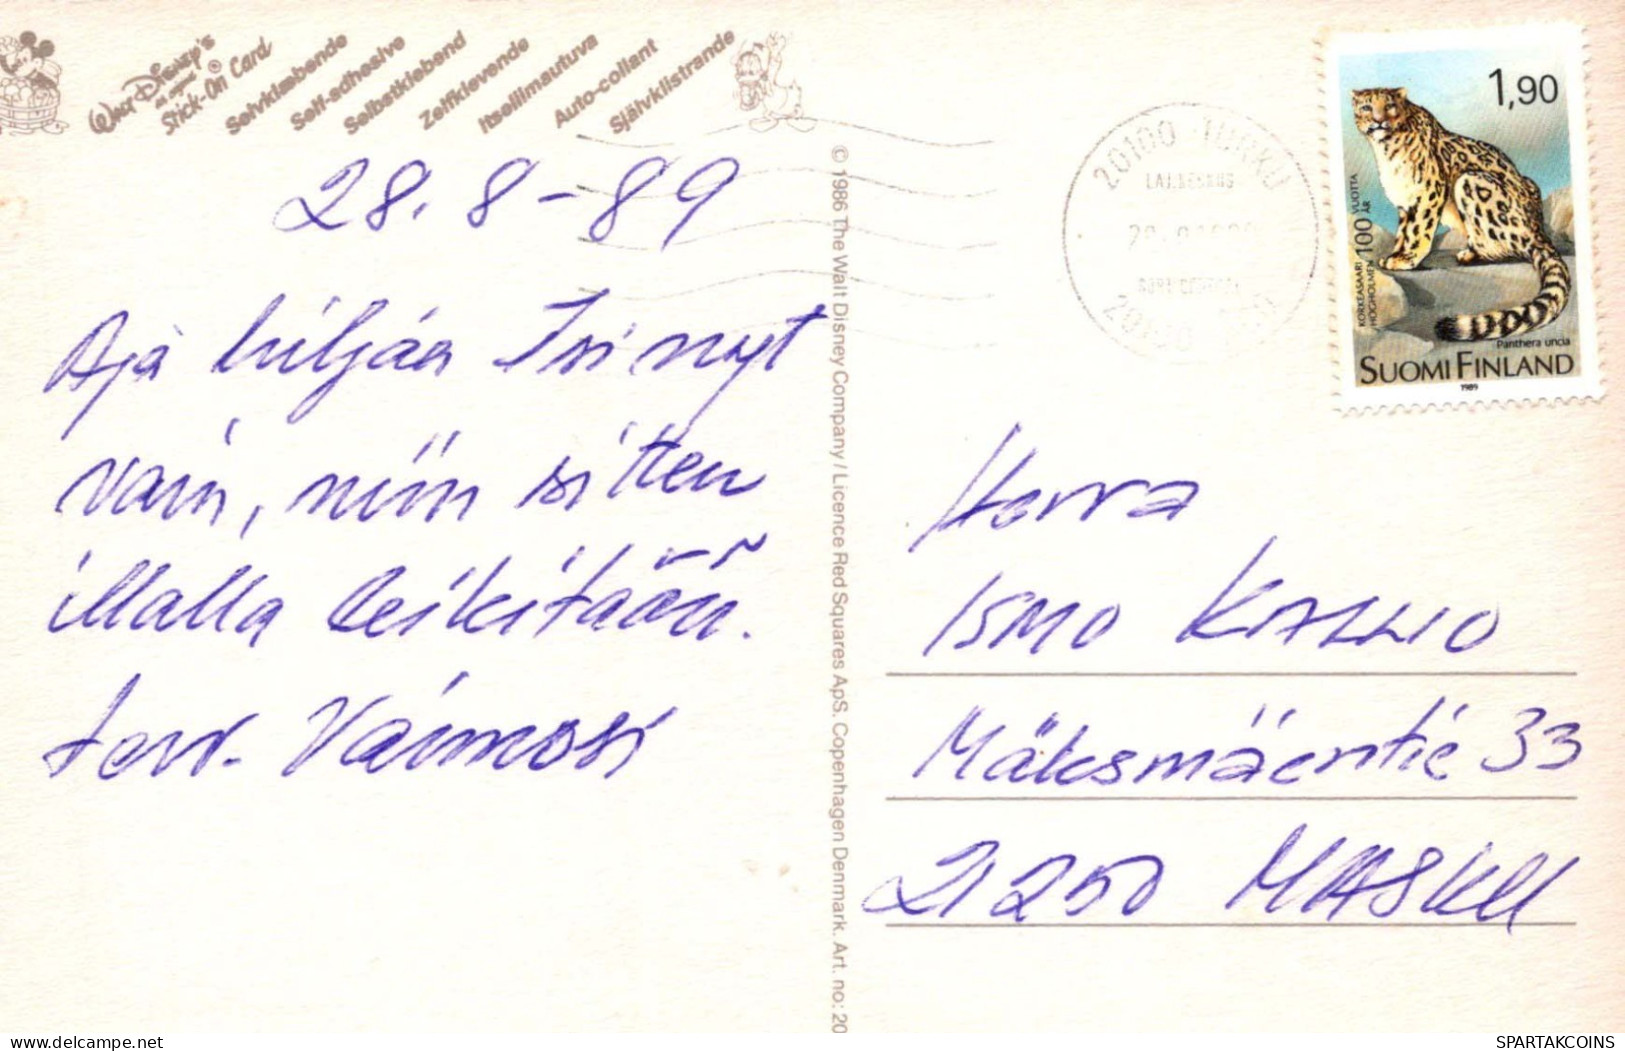 Walt Disney's
Stick-On® Card
Selvklæbende
Self-adhesive
Selbstklebend
Zelfklevende
Itseliimautuva
Auto-collant
Självklistrande
28.8-89
Ajä hiljaa Isi nyt
vain, niin sitten
illalla leikitään.
terv. Väinosi
© 1986 The Walt Disney Company/Licence Red Squares ApS. Copenhagen Denmark. Art. no: 20
20100 TURKU
1,90
KORKEASAARI 100 VUOTTA
HÖGHOLMEN 100 ÅR
Panthera uncia
SUOMI FINLAND
1989
Herra
ISMO KALLIO
Mäksmäentie 33
21250 MASKU
delcampe.net
SPARTAKCOINS